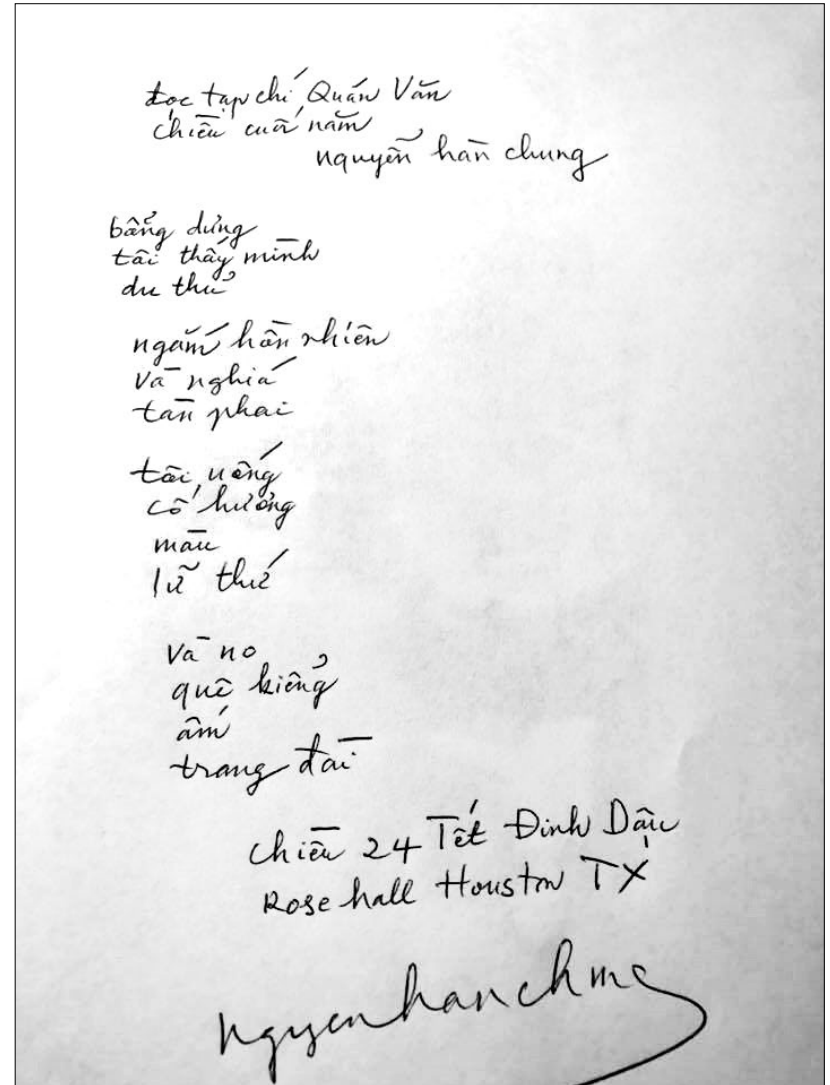 đọc tạp chí Quán Văn
chiều cuối năm
nguyễn hàn chung
bỗng dưng
tôi thấy mình
du thử
ngắm hồn nhiên
và nghía
tàn phai
tôi uống
cố hương
màu
lữ thứ
và no
quê kiểng
ấm
trang đài
chiều 24 Tết Đinh Dậu
Rose hall Houston TX
nguyenhanchung